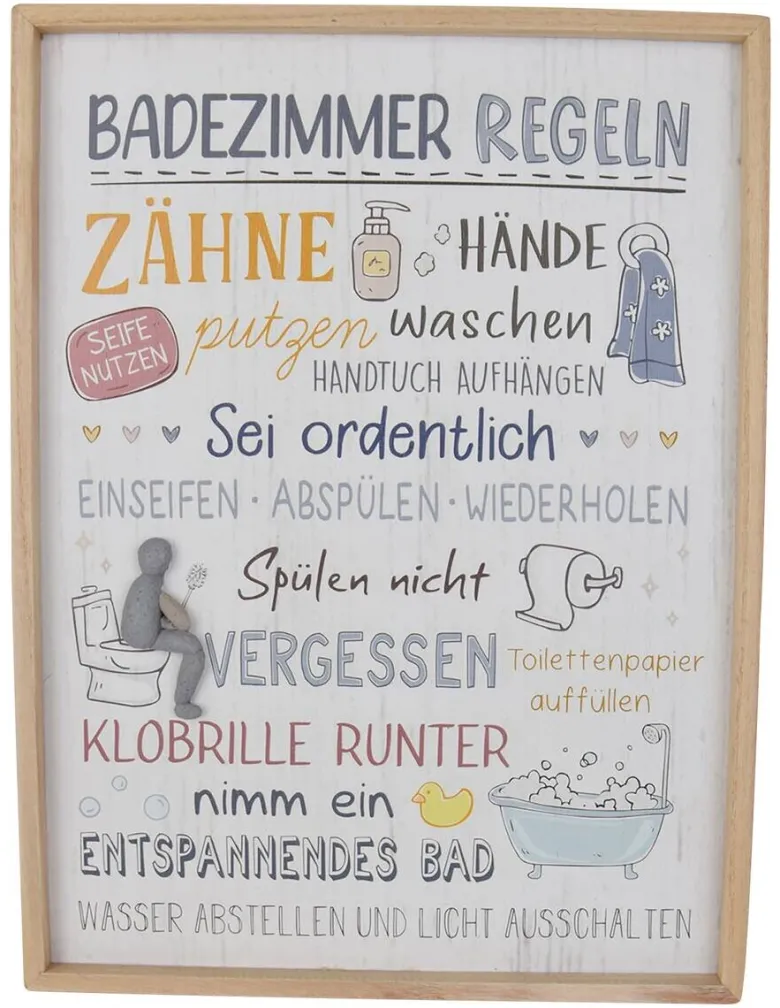 BADEZIMMER REGELN
ZÄHNE
putzen
HÄNDE
waschen
SEIFE
NUTZEN
HANDTUCH AUFHÄNGEN
Sei ordentlich
EINSEIFEN · ABSPÜLEN · WIEDERHOLEN
Spülen nicht
VERGESSEN
Toilettenpapier
auffüllen
KLOBRILLE RUNTER
nimm ein
ENTSPANNENDES BAD
WASSER ABSTELLEN UND LICHT AUSSCHALTEN